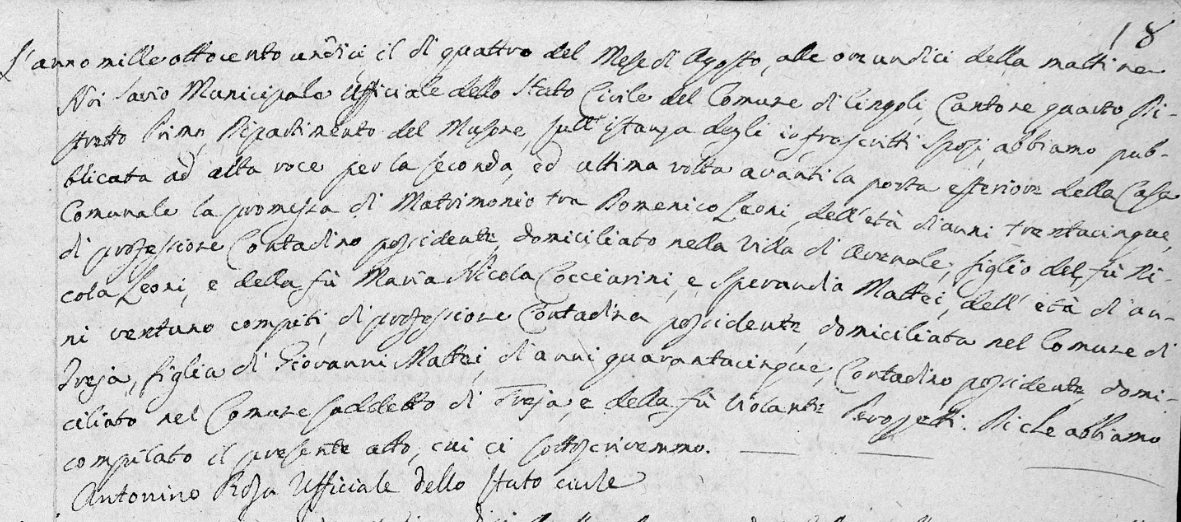 18
L'anno mille ottocento undici il di quattro del Mese di Agosto, alle ore undici della mattina
Noi Savio Municipale Ufficiale dello Stato Civile del Comune di Cingoli, Cantone quarto Di-
stretto Primo, Dipartimento del Musone, sull'istanza degli infrascritti Sposi, abbiamo pub-
blicata ad alta voce per la seconda, ed ultima volta avanti la porta esteriore della Casa
Comunale la promessa di Matrimonio tra Domenico Leoni, dell'età di anni trentacinque,
di professione Contadino possidente, domiciliato nella Villa di Avenale, figlio del fù Ni-
cola Leoni, e della fù Maria Nicola Cocciarini, e Sperandia Mattei, dell'età di an-
ni ventuno compiti, di professione Contadina possidente, domiciliata nel Comune di
Treja, figlia di Giovanni Mattei, di anni quarantacinque, Contadino possidente domi-
ciliato nel Comune suddetto di Treja, e della fù Violante Di che abbiamo
compilato il presente atto, cui ci sottoscrivemmo.
Antonino Rosa Ufficiale dello Stato civile